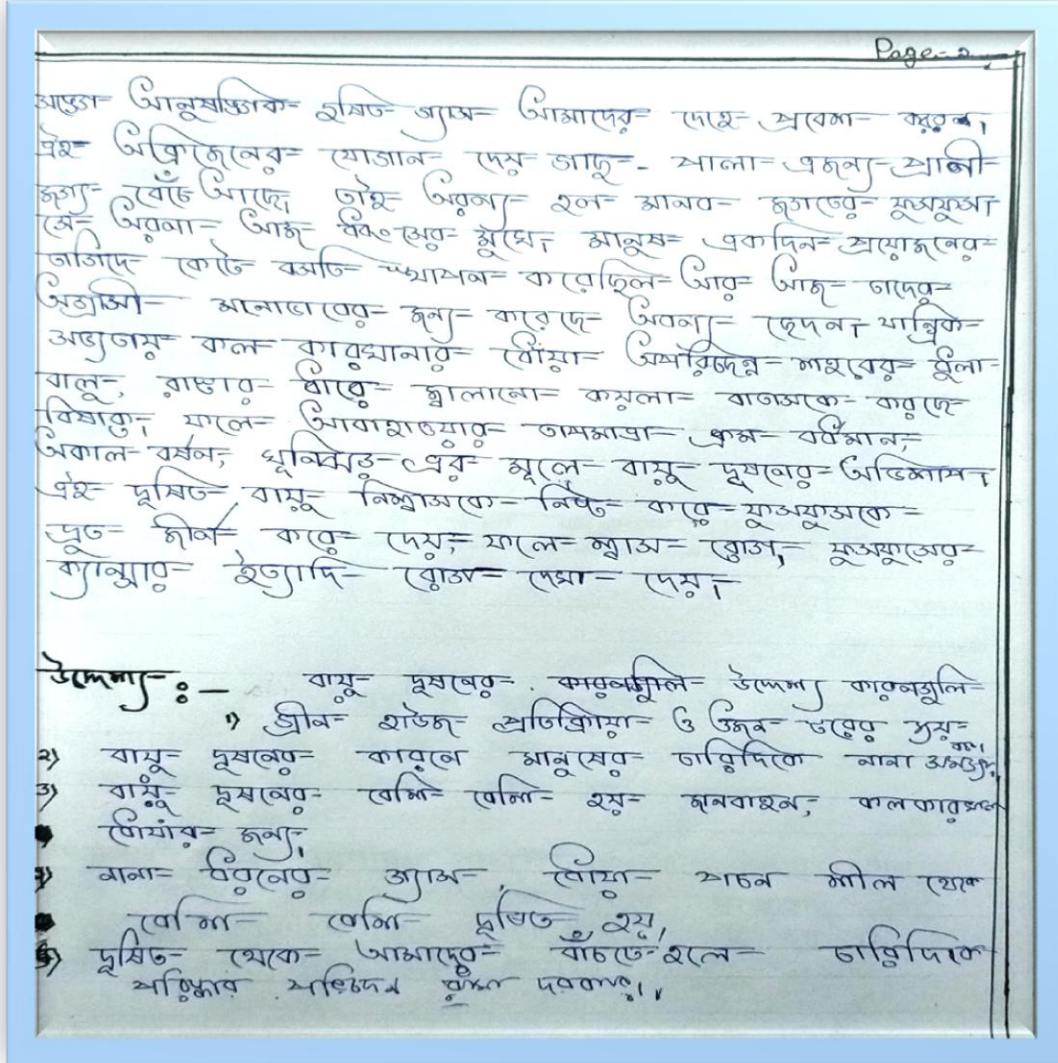 Page - 2
আনুষঙ্গিক দূষিত গ্যাস আমাদের দেহে প্রবেশ করে।
এই অক্সিজেনের যোগান দেয় গাছ - পালা এজন্য প্রাণী
জগৎ বেঁচে আছে, তাই অরণ্য হল মানব জগতের ফুসফুস।
সে অরণ্য আজ ধ্বংসের মুখে। মানুষ একদিন প্রয়োজনের
তাগিদে কেটে বসতি স্থাপন করেছিল আর আজ তাদের
মনোভাবের জন্য করেছে অরণ্য ছেদন। যান্ত্রিক
সভ্যতায় কল কারখানার ধোঁয়া অপরিচ্ছন্ন শহরের ধুলা
বালু, রাস্তার ধারে জ্বালানো কয়লা বাতাসকে করছে
বিষাক্ত, ফলে আবহাওয়ার তাপমাত্রা ক্রম বর্ধমান,
অকাল বর্ষন, ঘূর্নিঝড় এর মূলে বায়ু দূষনের অভিশাপ।
এই দূষিত বায়ু নিশ্বাসকে নষ্ট করে ফুসফুসকে
দ্রুত জীর্ন করে দেয়, ফলে শ্বাস রোগ, ফুসফুসের
ক্যান্সার ইত্যাদি রোগ দেখা দেয়।
উদ্দেশ্য :- বায়ু দূষনের কারনগুলি উদ্দেশ্য কারনগুলি
১) গ্রীন হাউজ প্রতিক্রিয়া ও ওজন স্তরের ক্ষয়
২) বায়ু দূষনের কারনে মানুষের চারিদিকে নানা
৩) বায়ু দূষনের বেশি বেশি হয় জানবাহন, কলকারখানা
ধোঁয়ার জন্য।
নানা ধরনের গ্যাস, ধোঁয়া পাচন শীল থেকে
বেশি বেশি দূষিত হয়,
৫) দূষিত থেকে আমাদের বাঁচতে হলে চারিদিক
পরিষ্কার পরিচ্ছন্ন রাখা দরকার।।